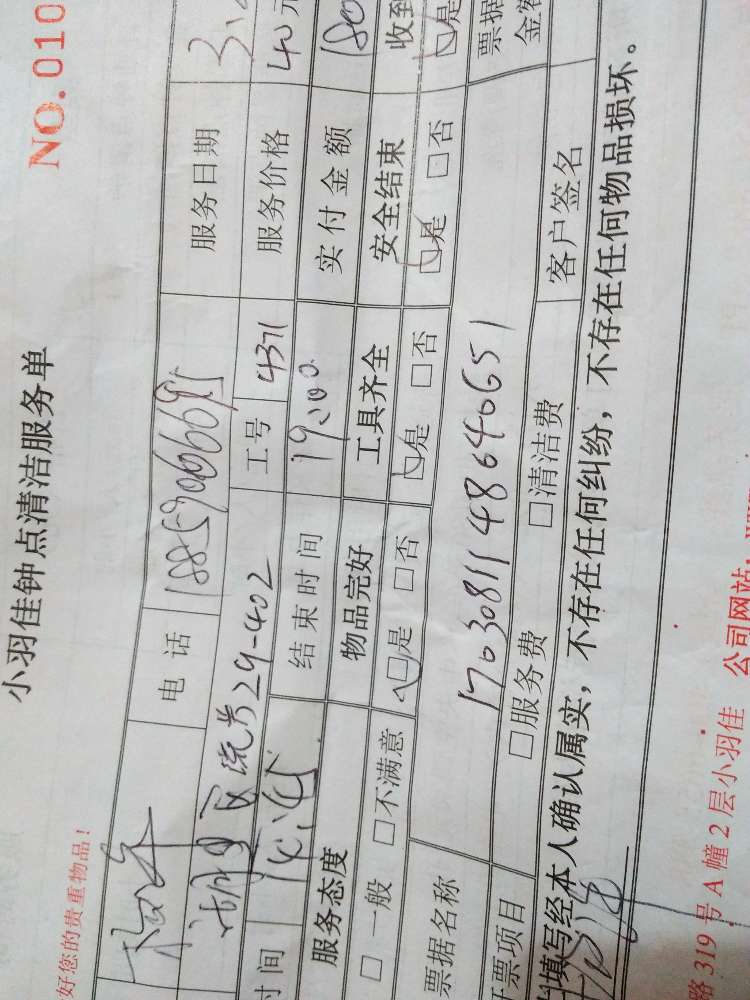 小羽佳钟点清洁服务单
NO.010
好您的贵重物品！
电话 服务日期 3.
29-402 工号 4371 服务价格 40元
时间 结束时间 19:00 实付金额 180
服务态度 物品完好 工具齐全 安全结束 收到
□一般 □不满意 □是 □否 □是 □否 □是 □否 □是
票据名称 1703081148640651 票据
金额
票项目 □服务费 □清洁费 客户签名
填写经本人确认属实，不存在任何纠纷，不存在任何物品损坏。
路 319 号 A 幢 2 层小羽佳 公司网站：